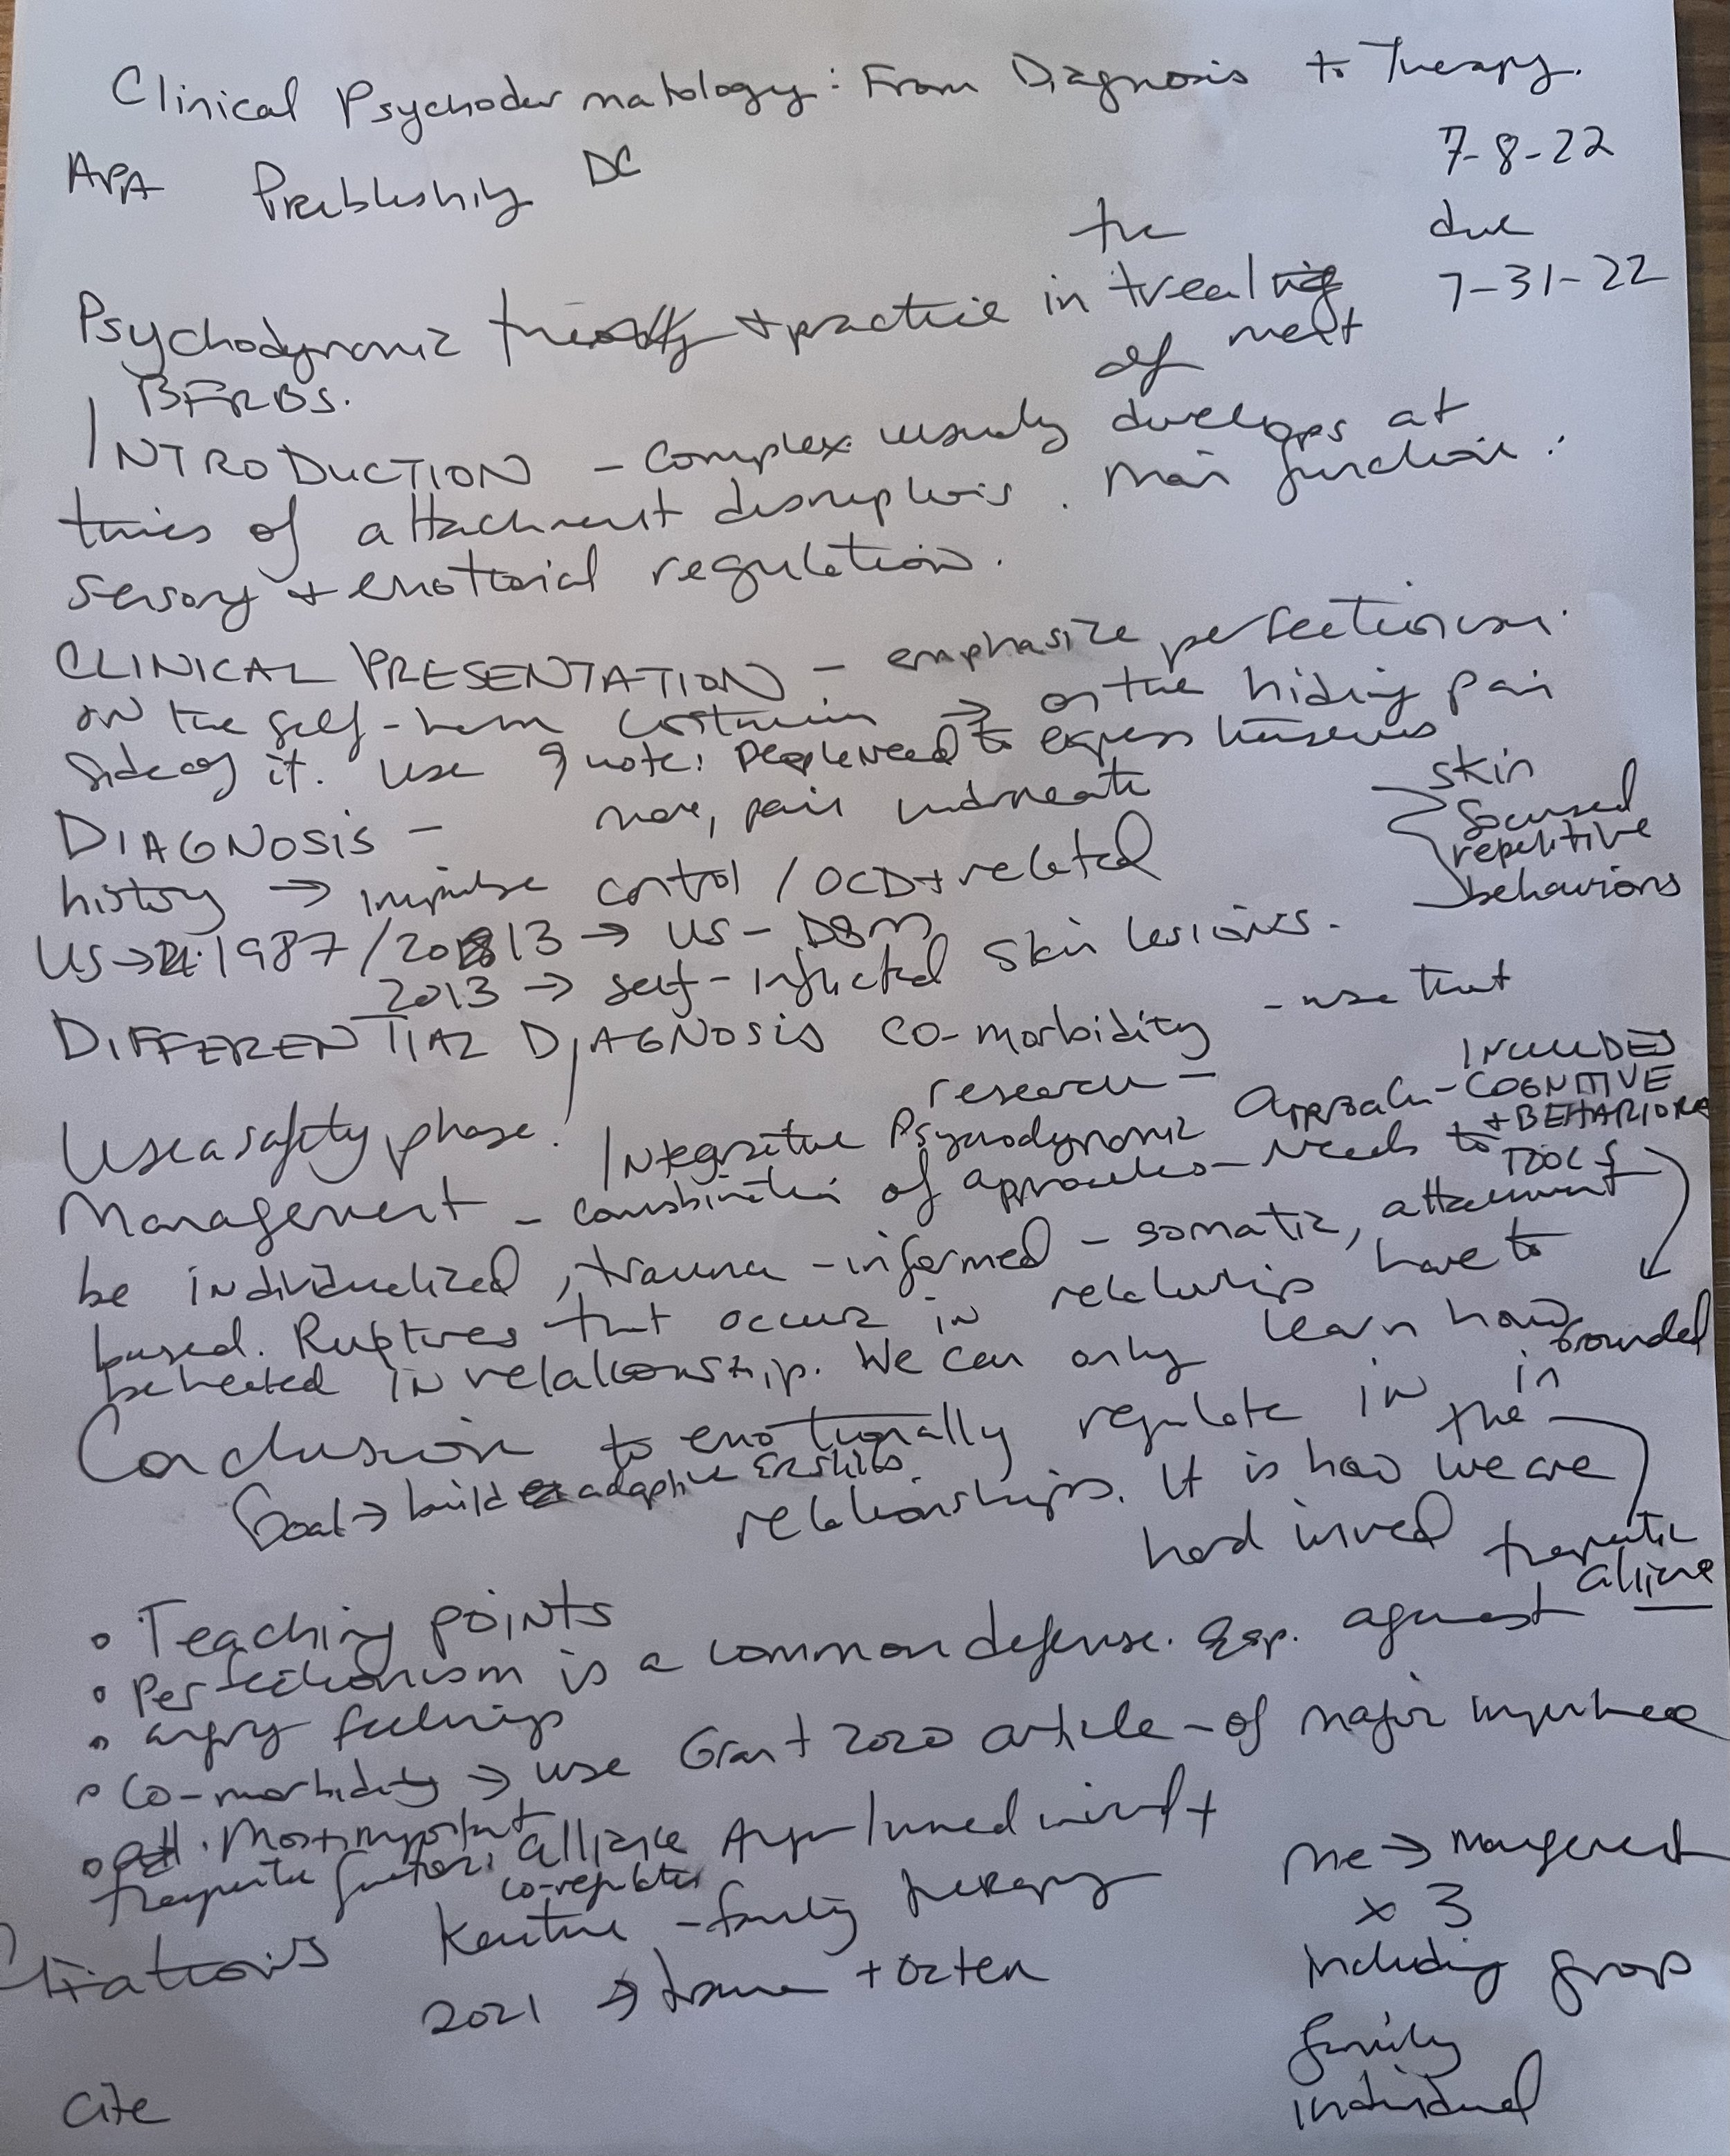 Clinical Psychodermatology: From Diagnosis to Therapy.
APA Publishing DC
7-8-22
due
7-31-22
Psychodynamic theory + practice in the treat
of ment
BFRBS.
INTRODUCTION - complex. usually develops at
times of attachment disruptions. Main function:
sensory + emotional regulation.
CLINICAL PRESENTATION - emphasize perfectionism.
on the self-harm continuum → on the hiding pain
side of it. Use quote: People need to express themselves
more, pain underneath
DIAGNOSIS -
skin
focused
repetitive
behaviors
history → impulse control / OCD + related
US → 1987/2013 → US - DSM
2013 → self-inflicted skin lesions.
DIFFERENTIAL DIAGNOSIS CO-morbidity - use that
research -
Use a safety phase!
Integrative Psychodynamic Approach - INCLUDES
COGNITIVE
+ BEHAVIORAL
TOOLS
Management - combination of approaches - needs to
be individualized, trauma-informed - somatic, attachment
based. Ruptures that occur in relationship have to
be healed in relationship. We can only learn how
grounded
in
the
therapeutic
alliance
Conclusion to emotionally regulate in
Goal → build adaptive ER skills.
relationships. It is how we are
hard wired
• Teaching points
• Perfectionism is a common defense. Esp. against
• angry feelings
• Co-morbidity → use Grant 2020 article - of major importance
• Most important
therapeutic factor: alliance
co-regulation
mind +
Citations
family therapy
2021 → + Ozten
me → management
x 3
including group
family
individual
cite